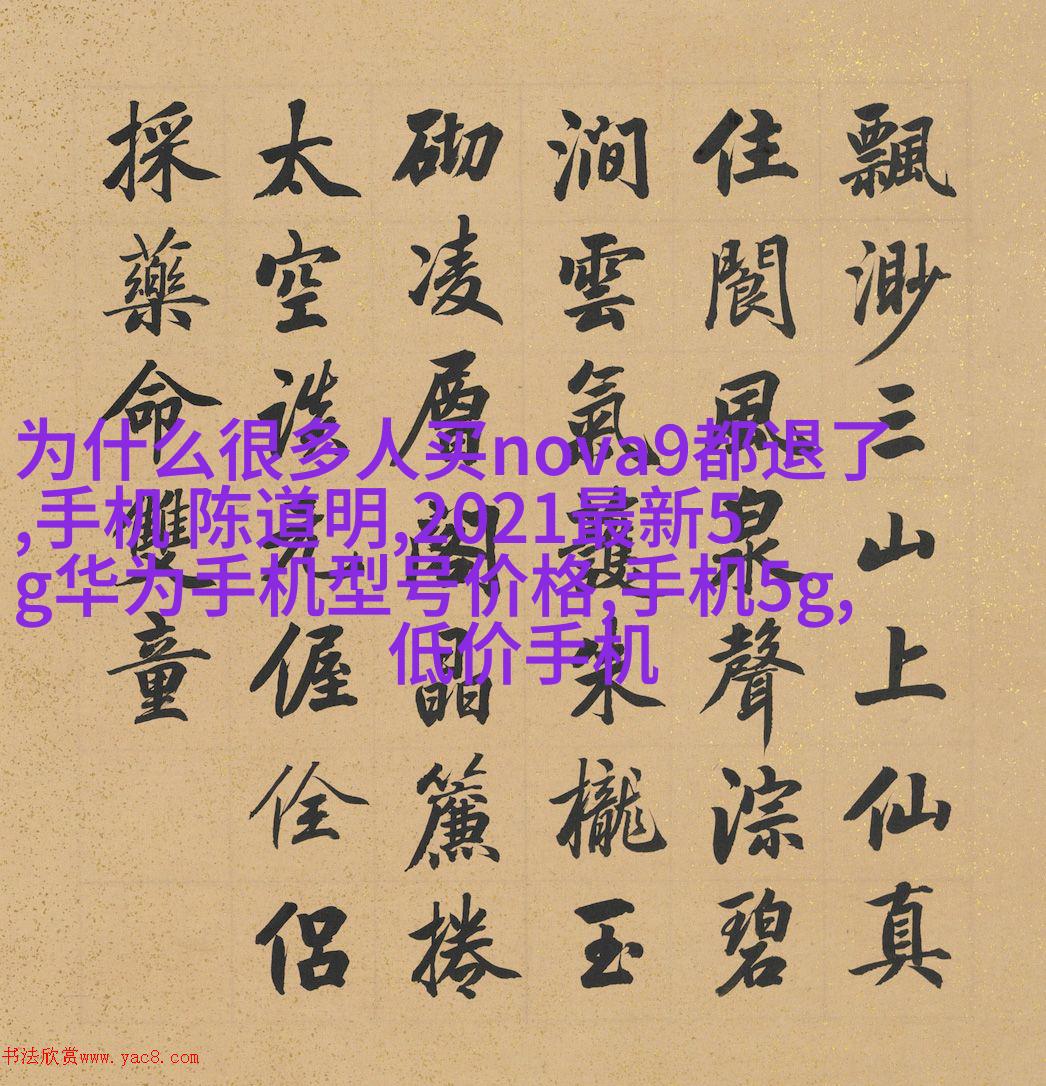 飄渺三山上仙真
住閬風泉聲淙碧
澗雲氣護朱櫳玉
砌凌層閣晶簾捲
太空偓佺侶
採藥命雙童
为什么很多人买nova9都退了
,手机 陈道明,2021最新5
g华为手机型号价格,手机5g,
低价手机
书法欣赏www.yac8.com